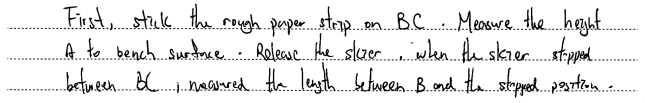 First, stick the rough paper strip on BC. Measure the height
A to bench surface. Release the skier, when the skier stopped
between BC, measured the length between B and the stopped position.